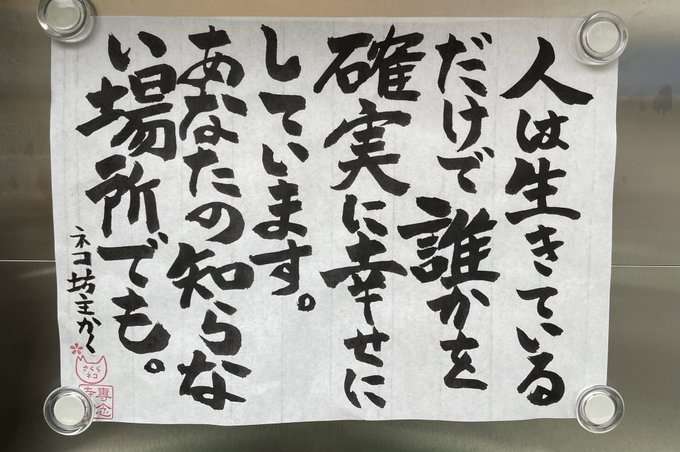 人は生きている
だけで誰かを
確実に幸せに
しています。
あなたの知らな
い場所でも。
ネコ坊主かく
さくら
ネコ
専念
寺